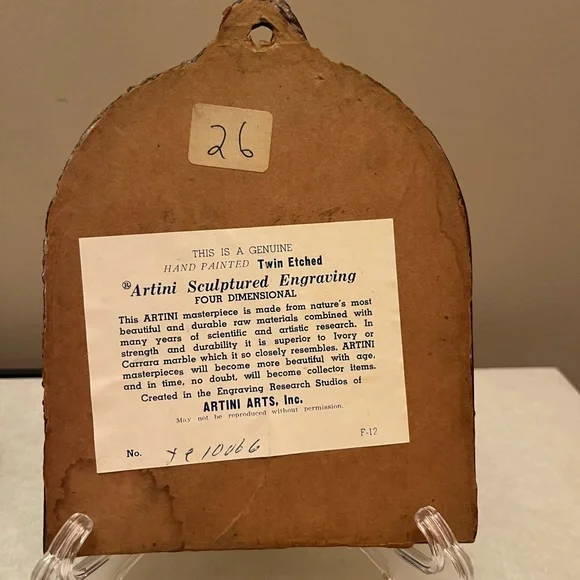 26
THIS IS A GENUINE
HAND PAINTED Twin Etched
®Artini Sculptured Engraving
FOUR DIMENSIONAL
This ARTINI masterpiece is made from nature's most
beautiful and durable raw materials combined with
many years of scientific and artistic research. In
strength and durability it is superior to Ivory or
Carrara marble which it so closely resembles. ARTINI
masterpieces will become more beautiful with age.
and in time, no doubt, will become collector items.
Created in the Engraving Research Studios of
ARTINI ARTS, Inc.
May not be reproduced without permission.
F-12
No. 10066